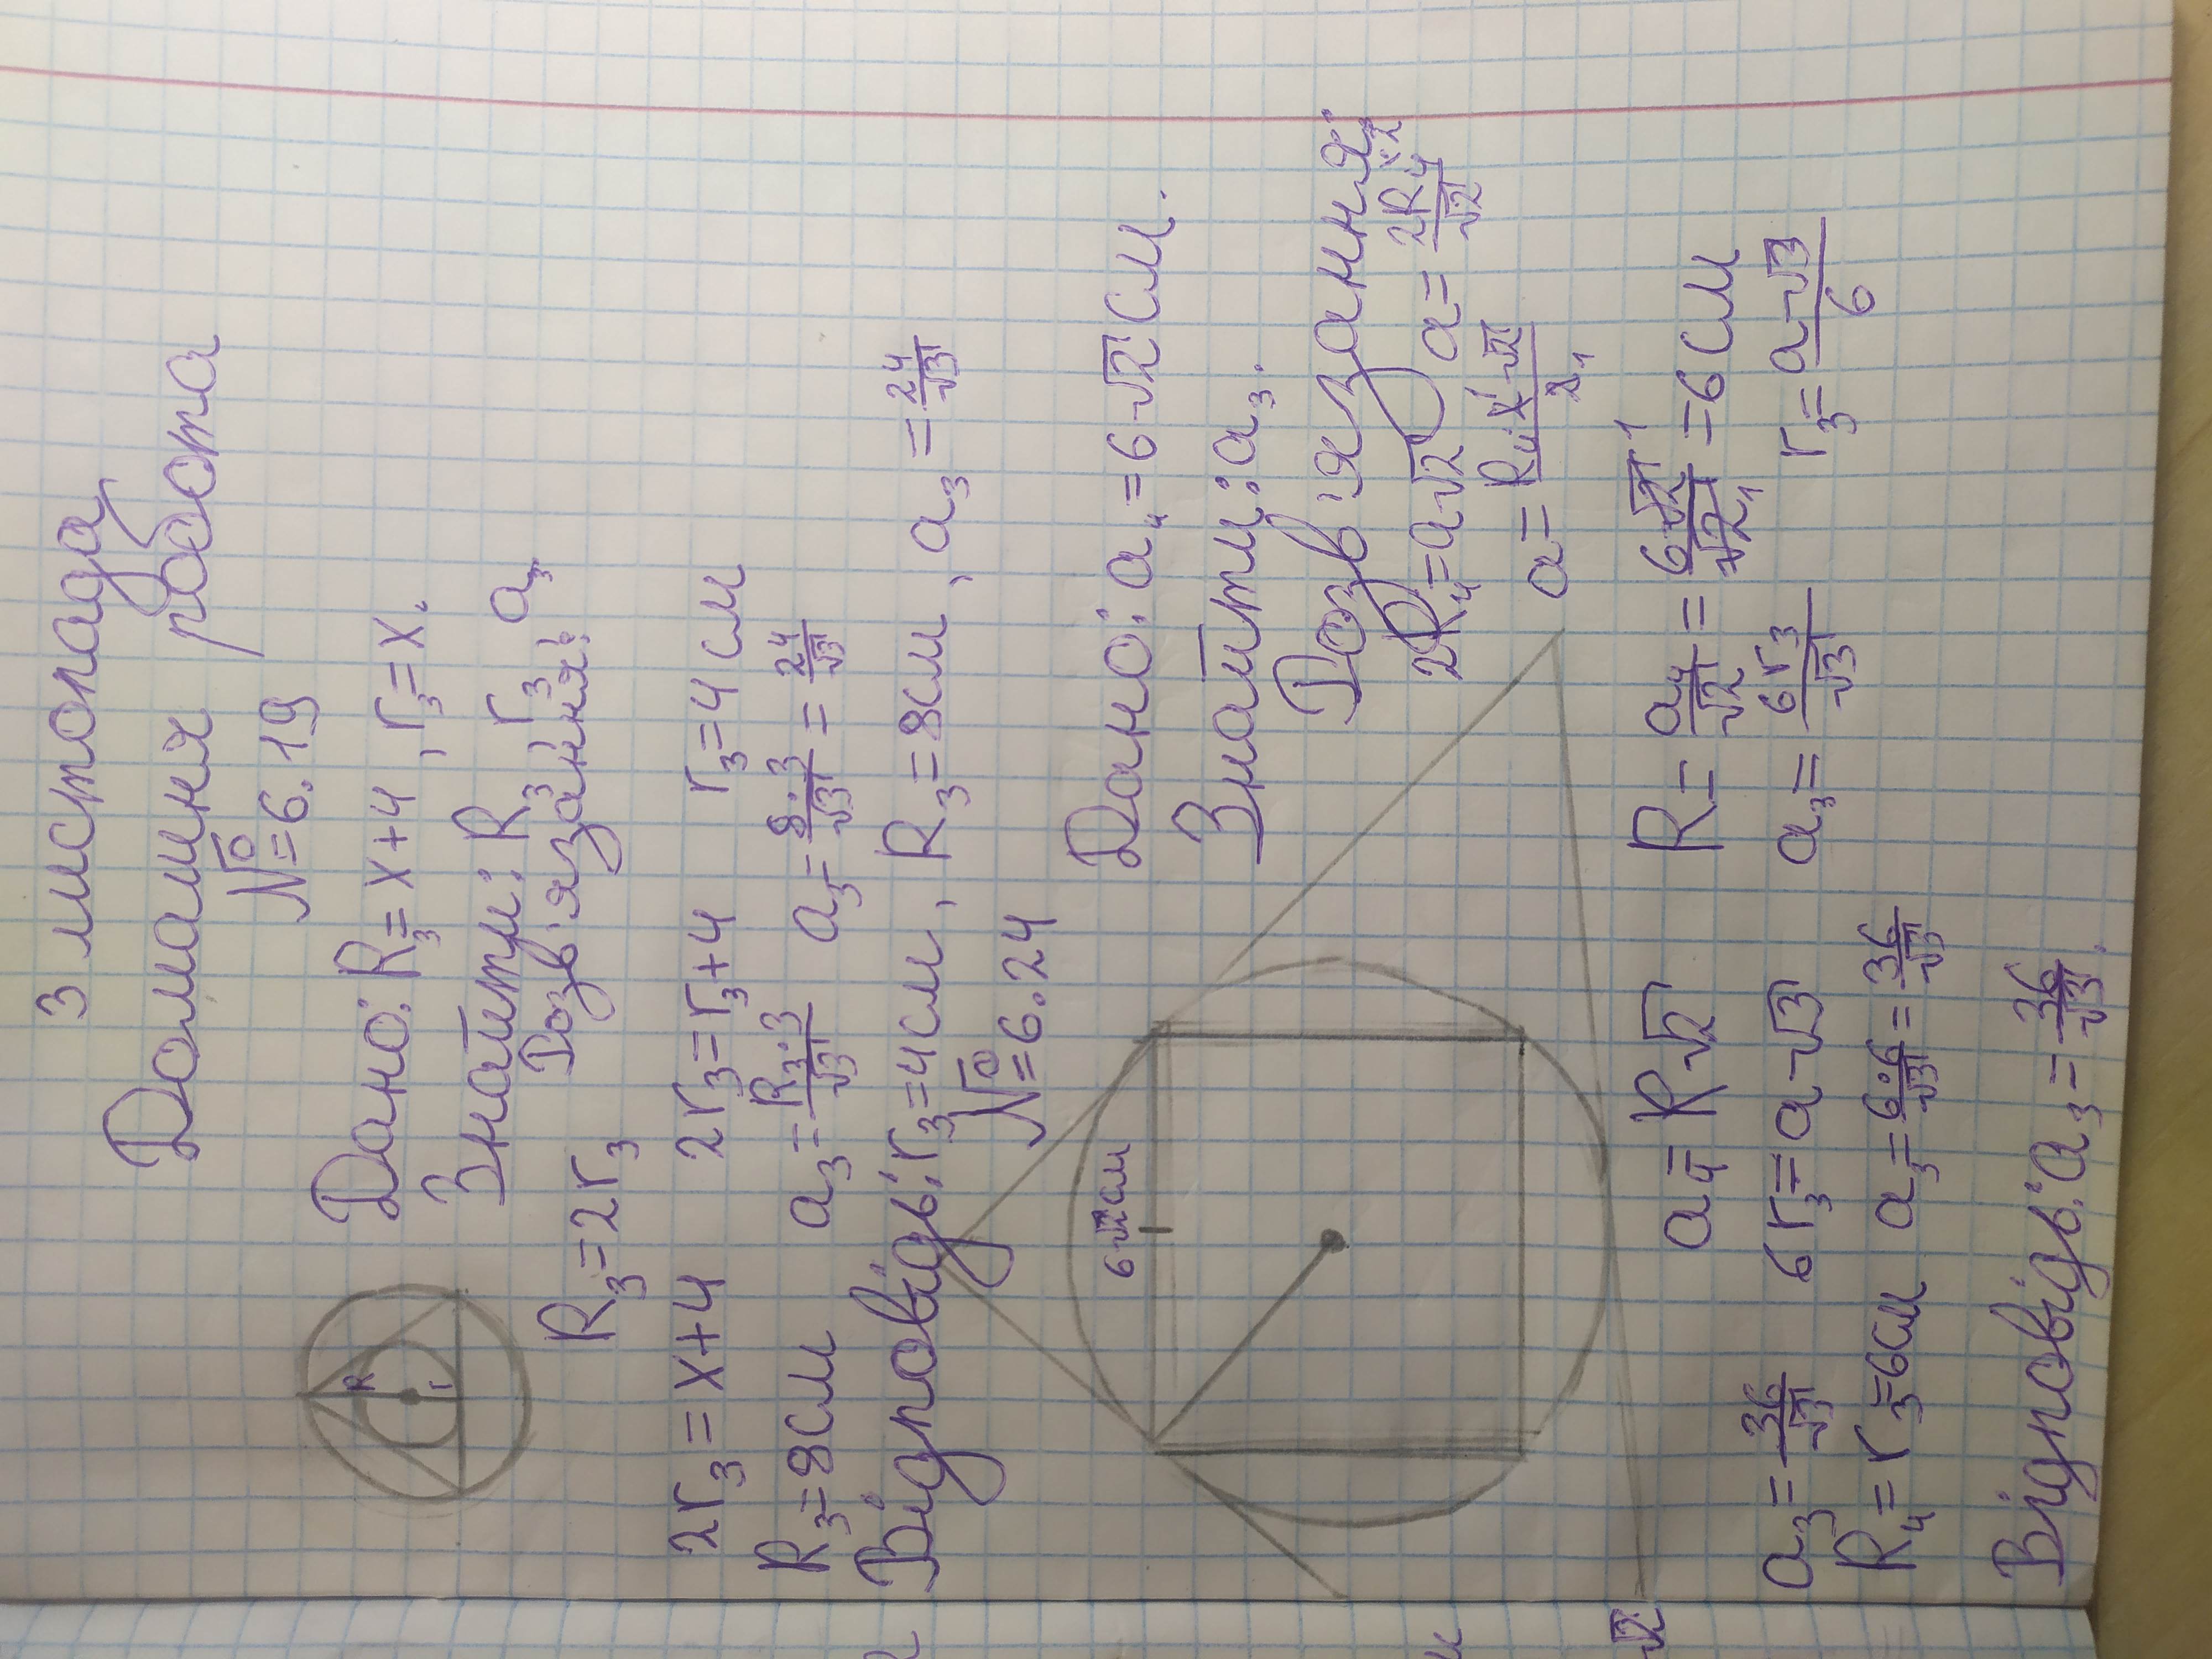 3 листопада
Домашня робота
№6.19
Дано: R₃=x+4, r₃=x.
Знайти: R₃, r₃, a₃
Розв'язання:
R₃=2r₃
2r₃=x+4 2r₃=r₃+4 r₃=4см
R₃=8см a₃=R₃·3/√3 a₃=8·3/√3=24/√3
Відповідь: r₃=4см, R₃=8см, a₃=24/√3
№6.24
R
r
6√2см
Дано: a₄=6√2см.
Знайти: a₃.
Розв'язання:
2R₄=a√2 a=2R₄/√2
a=R₄·2·√2/2
a₄=R√2 R=a₄/√2=6√2/√2=6см
a₃=36/√3 6r₃=a√3 a₃=6r₃/√3 r₃=a√3/6
R₄=r₃=6см a₃=6·6/√3=36/√3
Відповідь: a₃=36/√3.
√2